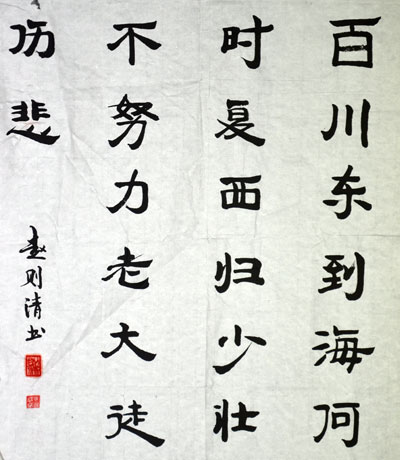 百川东到海何
时复西归少壮
不努力老大徒
伤悲
赵则清书